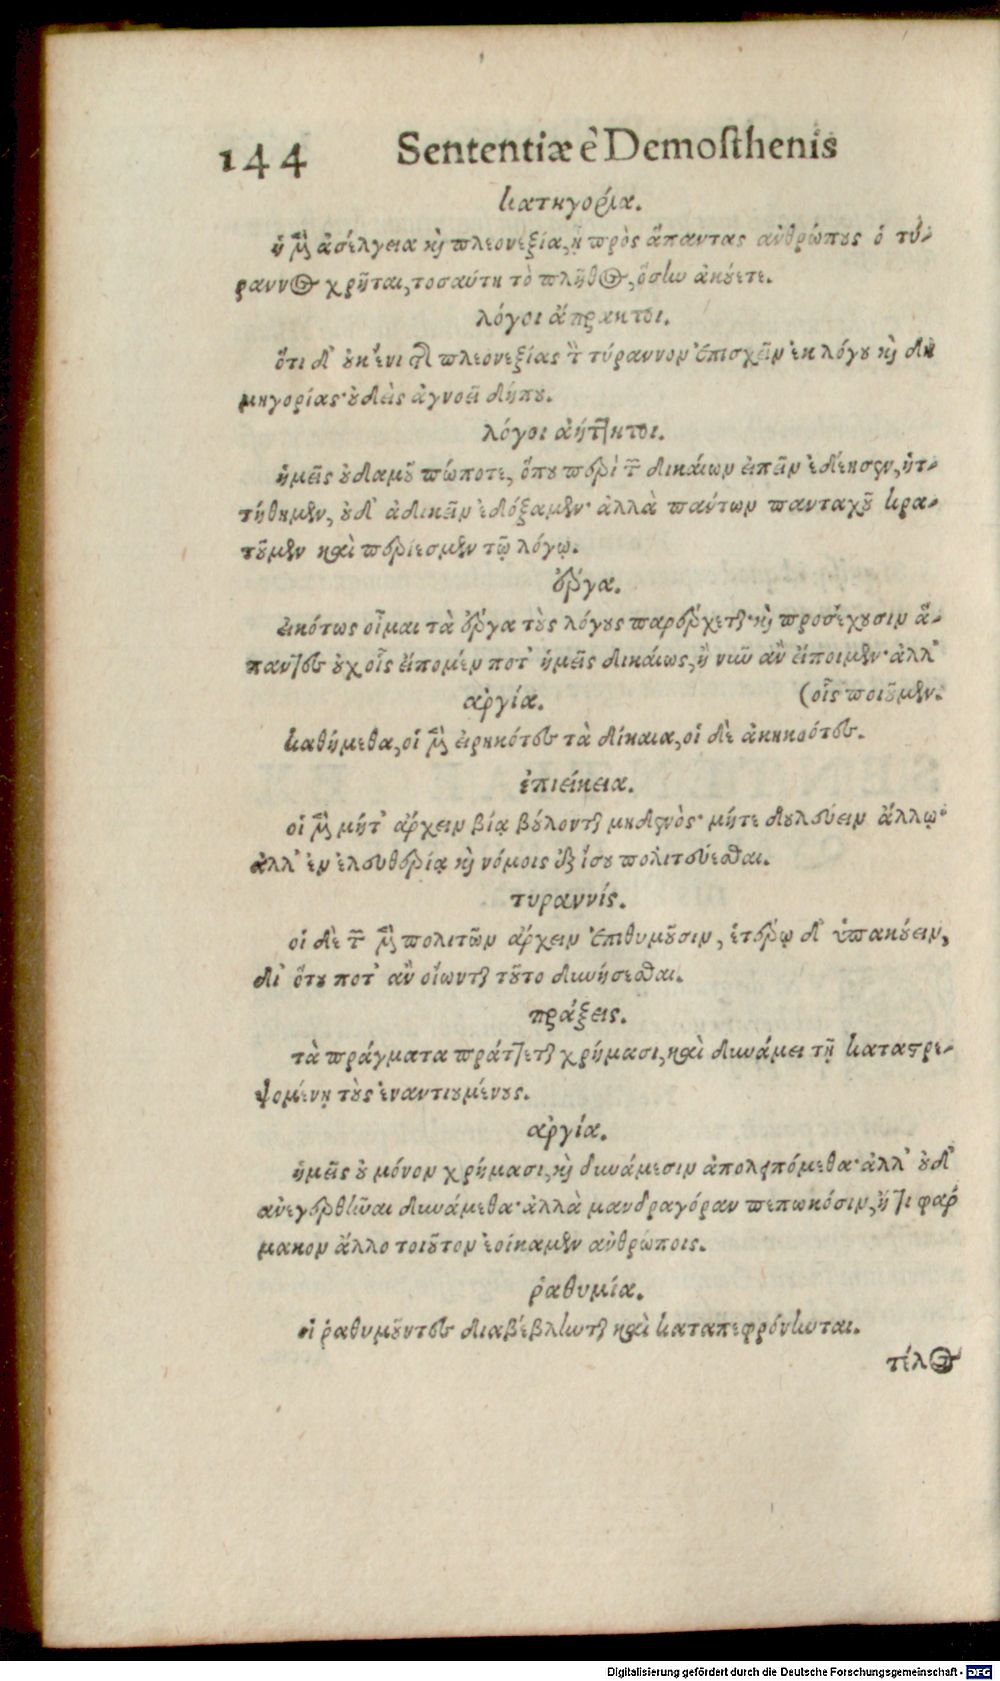 144 Sententiæ è Demoſthenis
κατηγορία.
ἡ μὲν ἀσέλγεια καὶ πλεονεξία, ᾗ πρὸς ἅπαντας ἀνθρώπους ὁ τύ-
ραννος χρῆται, τοσαύτη τὸ πλῆθος, ὅσην ἀκούετε.
λόγοι ἄπρακτοι.
ὅτι δ' οὐκ ἔνι τῆς πλεονεξίας τὸν τύραννον ἐπισχεῖν ἐκ λόγου καὶ δη
μηγορίας· οὐδεὶς ἀγνοεῖ δήπου.
λόγοι ἀήττητοι.
ἡμεῖς οὐδαμοῦ πώποτε, ὅπου περὶ τῶν δικαίων εἰπεῖν ἐδέησεν, ἡτ-
τήθημεν, οὐδ' ἀδικεῖν ἐδόξαμεν· ἀλλὰ πάντων πανταχοῦ κρα-
τοῦμεν καὶ περίεσμεν τῷ λόγῳ.
ἔργα.
εἰκότως οἶμαι τὰ ἔργα τοὺς λόγους παρέρχεται· καὶ προσέχουσιν ἅ-
παντες οὐχ οἷς εἴπομέν ποτ' ἡμεῖς δικαίως, ἢ νῦν ἂν εἴποιμεν· ἀλλ'
ἀργία. (οἷς ποιοῦμεν.
καθήμεθα, οἱ μὲν εἰρηκότες τὰ δίκαια, οἱ δὲ ἀκηκοότες.
ἐπιείκεια.
οἱ μὲν μήτ' ἄρχειν βίᾳ βούλονται μηδενὸς· μήτε δουλεύειν ἄλλῳ·
ἀλλ' ἐν ἐλευθερίᾳ καὶ νόμοις ἐξ ἴσου πολιτεύεσθαι.
τυραννίς.
οἱ δὲ τῶν μὲν πολιτῶν ἄρχειν ἐπιθυμοῦσιν, ἑτέρῳ δ' ὑπακούειν,
δι' ὅτου ποτ' ἂν οἴωνται τοῦτο δυνήσεσθαι.
πράξεις.
τὰ πράγματα πράττεται χρήμασι, καὶ δυνάμει τῇ καταστρε-
ψομένῃ τοὺς ἐναντιουμένους.
ἀργία.
ἡμεῖς οὐ μόνον χρήμασι, καὶ δυνάμεσιν ἀπολειπόμεθα· ἀλλ' οὐδ'
ἀνεγερθῆναι δυνάμεθα· ἀλλὰ μανδραγόραν πεπωκόσιν, ἤ τι φάρ
μακον ἄλλο τοιοῦτον ἐοίκαμεν ἀνθρώποις.
ῥαθυμία.
οἱ ῥαθυμοῦντες διαβέβληνται καὶ καταπεφρόνηνται.
τέλος
Digitalisierung gefördert durch die Deutsche Forschungsgemeinschaft - DFG